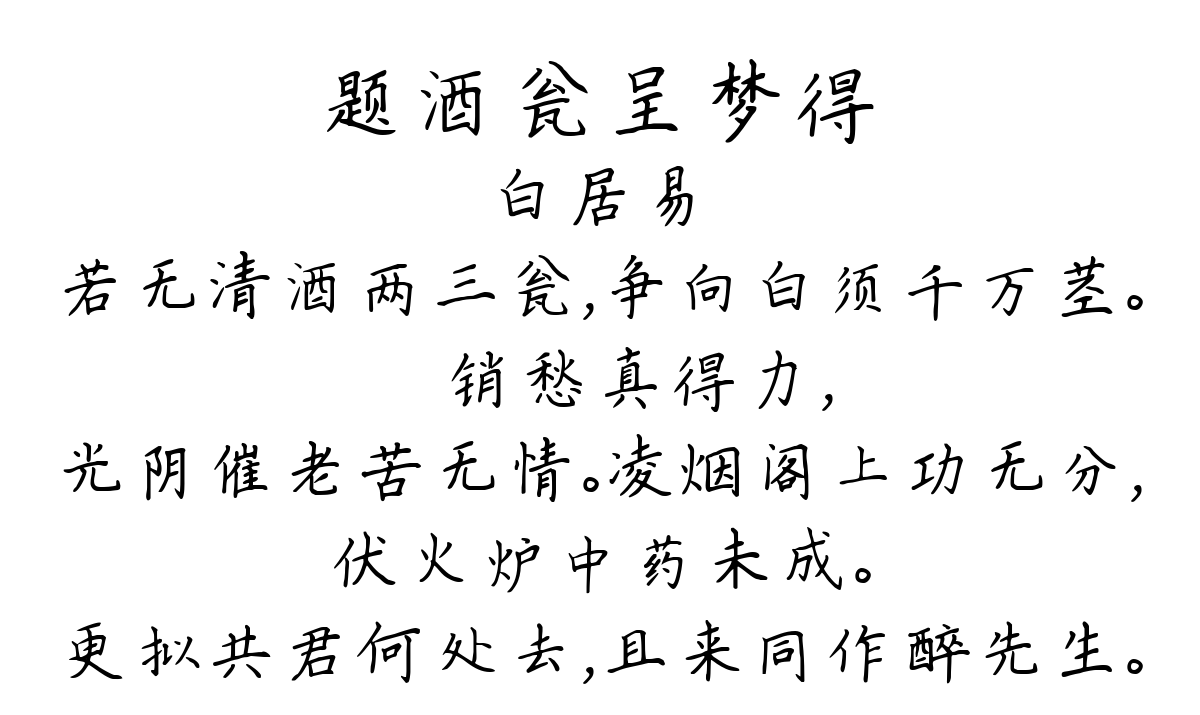 题酒瓮呈梦得
白居易
若无清酒两三瓮,争向白须千万茎。
销愁真得力,
光阴催老苦无情。凌烟阁上功无分,
伏火炉中药未成。
更拟共君何处去,且来同作醉先生。